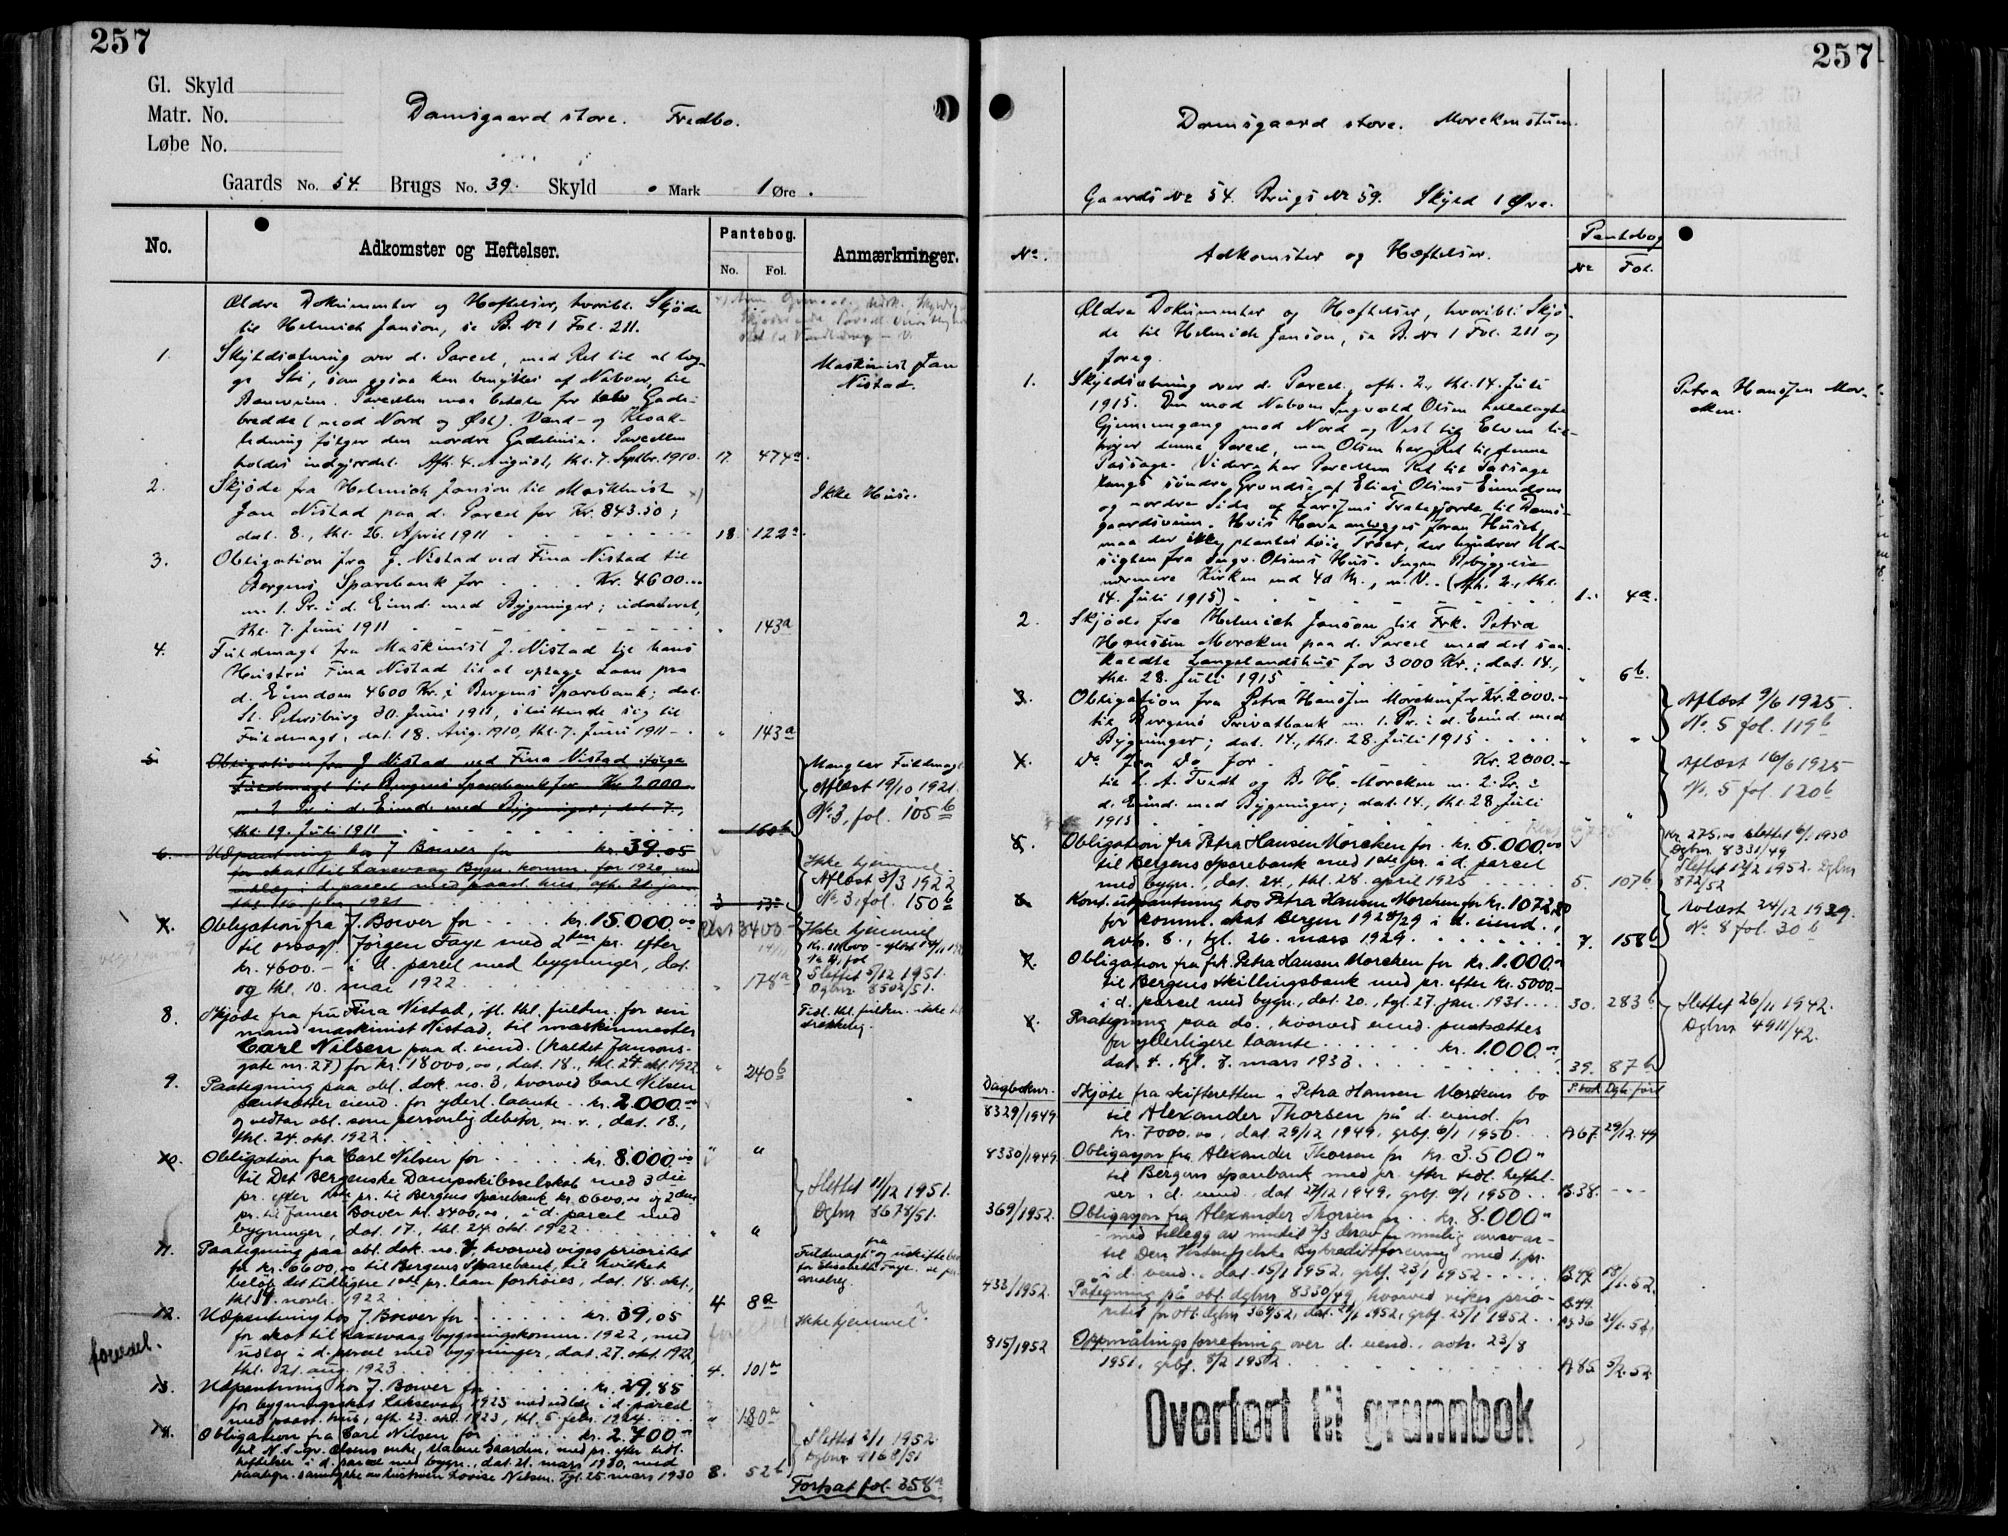 257
Gl. Skyld
Matr. No.
Løbe No.
Damsgaard store. Fredbo.
Gaards No. 54. Brugs No. 39. Skyld • Mark 1 Øre.
No.
Adkomster og Heftelser.
Pantebog.
No. Fol.
Anmærkninger.
Ældre Dokumenter og Heftelser, hvoribl. Skjøde
til Helmich Janson, se B. № 1 Fol. 211.
1. Skyldsætning over d. Parcel, med Ret til at byg-
ge Sti, som ogsaa kan benyttes af Naboer, til
Parcellen maa betale for halv Gade-
bredde (mod Nord og Øst). Vand- og Kloak-
ledning følger den nordre Gadelinie. Parcellen
holdes indgjerdet. Afh. 4. August, thl. 7. Septbr. 1910. 17. 474a.
Maskinist Jan
Nistad.
2. Skjøde fra Helmich Janson til Maskinist
Jan Nistad paa d. Parcel for Kr. 843.50;
dat. 8., thl. 26. April 1911 18. 122a.
Ikke Huse.
3. Obligation fra J. Nistad ved Fina Nistad til
Bergens Sparebank for Kr. 4600.
m. 1. Pr. i d. Eiend. med Bygninger; udateret,
thl. 7. Juni 1911 " 143a
4. Fuldmagt fra Maskinist J. Nistad til hans
Hustru Fina Nistad til at optage Laan paa
d. Eiendom 4600 Kr. i Bergens Sparebank; dat.
St. Petersburg 30. Juni 1911, sluttende sig til
Fuldmagt, dat. 18. Aug. 1910, thl. 7. Juni 1911 " 143a
5. Obligation fra J Nistad ved Fina Nistad ifølge
Fuldmagt til Bergens Sparebank for Kr 2000
m. 2 Pr. i d. Eiend. med Bygninger; dat. 7.,
thl. 19. Juli 1911 160b
Mangler Fuldmagt
Aflæst 19/10 1921.
№ 3, fol. 105b
6. Udpantning hos J Bower for kr. 39,05
for skat til Laxevaag Bygn. komm. for 1920, med
udlæg i d. parcel med paast. hus, afh. 21 jan.
thl. 16. febr. 1921 3 13a
Ikke hjemmel.
Aflæst 3/3 1922
№ 3, fol. 150b
7. Obligation fra J. Bower for kr. 15.000,00
til Jørgen Faye med 2den pr. efter
kr. 4600.- i d. parcel med bygninger, dat.
og thl. 10. mai 1922 " 178a
Ikke hjemmel
Slettet 5/12 1951.
Dgbnr 8502/51.
8. Skjøde fra fru Fina Nistad, ifl. thl. fuldm. for sin
mand maskinist Nistad, til maskinmester
Carl Nilsen paa d. eiend. (kaldet Jansons-
gate nr. 27) for kr. 18000,00, dat. 18., thl. 24. okt. 1922 " 240b
Tidl. thl. fuldm. ikke til-
strekkelig.
9. Paategning paa obl. dok. no. 3, hvorved Carl Nilsen
pantsætter eiend. for yderl. laante kr. 2.000,00
og vedtar obl. som personlig debitor, m. v., dat. 18.,
thl. 24. okt. 1922. " "
10. Obligation fra Carl Nilsen for kr. 8.000,00
til Det Bergenske Dampskibsselskab med 3die
pr. efter 1ste pr. til Bergens Sparebank kr. 6600,00 og 2den
pr. til James Bower kr. 3400,00, i d. parcel med
bygninger, dat. 17., thl. 24. okt. 1922 " "
Slettet 11/12 1951.
Dgbnr 8678/51.
11. Paategning paa obl. dok. no. 7, hvorved viges prioritet
for kr. 6600,00 til Bergens Sparebank, til hvilket
beløb det tidligere 1ste pr. laan forhøies, dat. 18. okt.,
thl. 14. novb. 1922 4 8a
fra
Fuldmagt og uskiftebev.
for Elisabeth Faye
12. Udpantning hos J. Bower for kr. 39,05
for skat til Laxevaag bygningskomm. 1922, med
udlæg i d. parcel med bygninger, dat. 27. okt. 1922,
thl. 21. aug. 1923 4. 101a
Ikke hjemmel?
foreldet.
13. Udpantning hos J. Bower for kr. 29,85
for bygningsskat Laksevaag 1923 med udlæg i d. parcel
med paast. hus, afh. 23. okt. 1923, thl. 5. febr. 1924. " 180a
14. Obligation fra Carl Nilsen for kr. 2.700,00
til N. S. Olsens enke, Stalene Gaarden, med pr. efter tidl.
heftelser i d. parcel med bygn., dat. 21. mars 1930, med
paategn. samtykke av hustruen Lovise Nilsen. Tgl. 25 mars 1930 8. 52b
Slettet 2/1 1952
Dgbnr 9168/51
Fortsat fol. 358a
257
Damsgaard store. Morckenstuen.
Gaards № 54. Brugs № 59. Skyld 1 Øre.
№.
Adkomster og Hæftelser.
Pantebog
№ Fol.
Ældre Dokumenter og Heftelser, hvoribl. Skjø-
de til Helmich Janson, se B. № 1 Fol. 211 og
foreg.
1. Skyldsætning over d. Parcel, afh. 2., thl. 14. Juli
1915. Den mod Naboen Ingvald Olsen
Gjennemgang mod Nord og Vest til Elven til-
hører denne Parcel, men Olsen har Ret til denne
Passage. Videre har Parcellen Ret til Passage
langs søndre Grændse af Elias Olsens Eiendom
og nordre Side af Larsens Frahegjerde til Dams-
gaardsveien. Hvis Have anlægges foran Huset,
maa der ikke plantes høie Træer, der hindrer Ud-
sigten fra Ingv. Olsens Hus. Ingen Bebyggelse
nærmere Kirken end 40 M., m. V. (Afh. 2., thl.
14. Juli 1915) 1. 4a.
Petra Hansen Mor-
cken.
2. Skjøde fra Helmich Janson til Frk. Petra
Hansen Morcken paa d. Parcel med det saa-
kaldte Langelandshus for 3000 Kr.; dat. 14.,
thl. 28. Juli 1915 " 6b.
3. Obligation fra Petra Hansen Morcken for Kr. 2000.-
til Bergens Privatbank m. 1. Pr. i d. Eiend. med
Bygninger; dat. 14., thl. 28. Juli 1915 " "
Aflæst 9/6 1925.
№. 5 fol. 119b
4. Do fra Do for Kr. 2000.-
til L. A. Tvedt og B. H. Morcken m. 2. Pr. i
d. Eiend. med Bygninger; dat. 14., thl. 28 Juli
1915 " "
Aflæst 16/6 1925
№. 5 fol. 120b
5. Obligation fra Petra Hansen Morcken for kr. 5.000,00
til Bergens Sparebank med 1ste pr. i d. parcel
med bygn., dat. 24., thl. 28. april 1925 5. 107b
Kr. 275,00 slettet 6/1 1950
Dgbnr. 8331/49
Slettet 12/2 1952. Dgbnr
872/52
6. Konst. utpantning hos Petra Hansen Morcken for kr. 1072,80
for komm. skat Bergen 1928/29 i d. eiend.,
avh. 8., tgl. 26. mars 1929. 7. 158b
Avlæst 24/12 1929.
№. 8 fol. 30b
7. Obligation fra frk. Petra Hansen Morcken for kr. 1.000,-
til Bergens Skillingsbank med pr. efter kr. 5000.-
i d. parcel med bygn., dat. 20., tgl. 27. jan. 1931. 30. 283b
Slettet 26/11 1942.
Dgbnr 4911/42.
8. Paategning paa do., hvorved eiend. pantsættes
for ytterligere laante kr. 1.000,-,
dat. 4., tgl. 7. mars 1933. 39. 87b
Dagboknr. P.bok Dgb. ført
8329/1949 Skjøte fra skifteretten i Petra Hansen Morckens bo
til Alexander Thorsen på d. eiend. for
kr. 7000,00, dat 29/12 1949, grbf. 6/1 1950. A 67. 29/12.49
8330/1949. Obligasjon fra Alexander Thorsen for kr. 3.500"
til Bergens Sparebank med pr. efter tidl. heftel-
ser i d. eiend., dat 29/12 1949, grbf. 6/1 1950 B.38. - - -
369/1952. Obligasjon fra Alexander Thorsen for kr. 8.000"
med tillegg av inntil 2/3 derav for mulig ansvar
til Den Vestenfjelske Bykredittforening med 1. pr.
i d. eiend., dat. 15/1 1952, grbf. 23/1 1952 B.49. 18/1.52.
432/1952. Påtegning på obl. dgbnr 8330/49, hvorved vikes prio-
ritet for obl. dgbnr 369/52, dat. 21/1 1952, grbf. 25/1 1952. B.49. 36 21/1.52.
815/1952 Oppmålingsforretning over d. eiend., avh. 23/8
1951, grbf. 8/2 1952. A 85. 5/2.52.
Overført til grunnbok